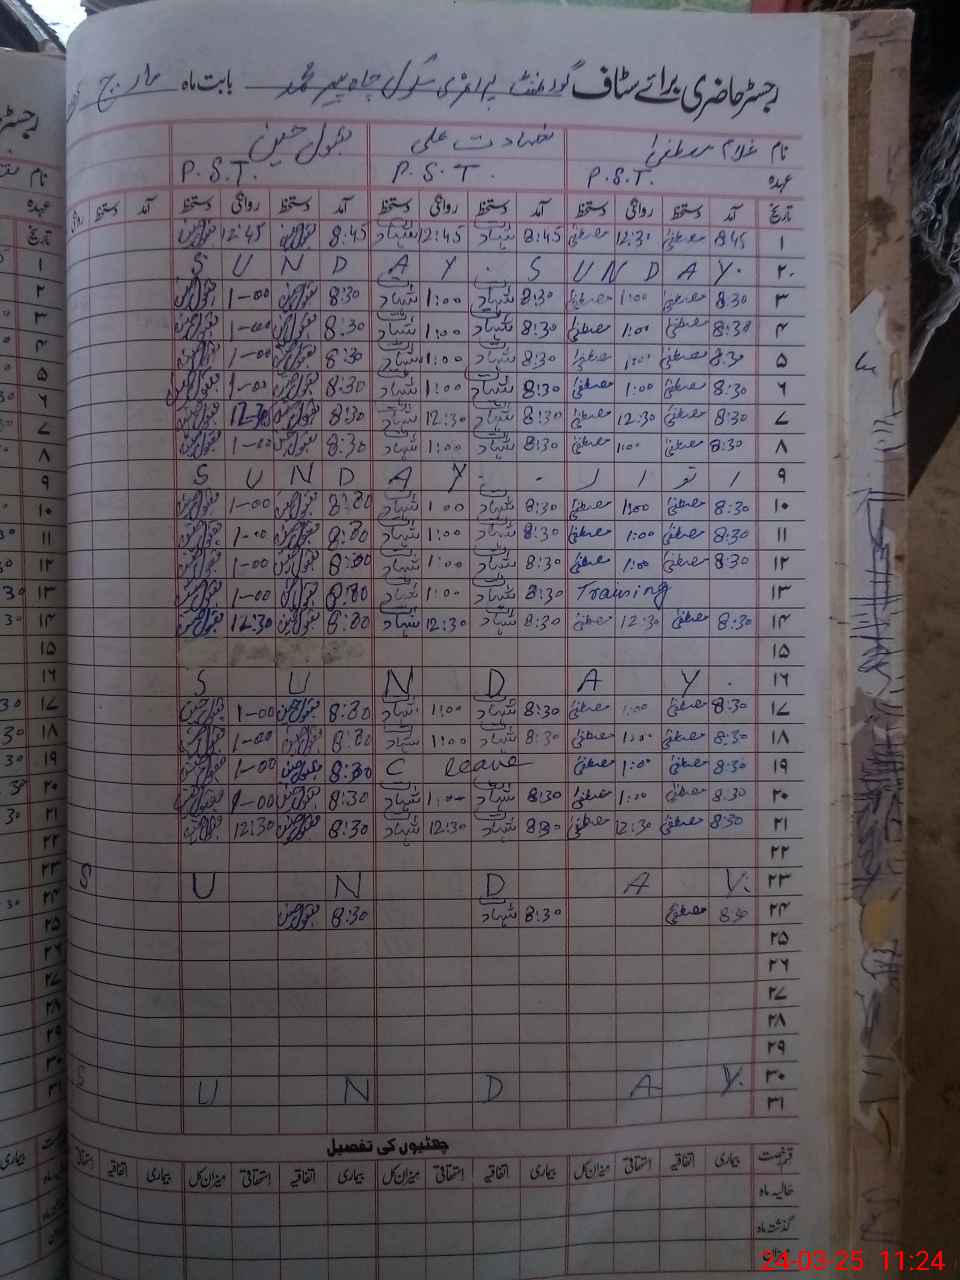 رجسٹر حاضری برائے سٹاف گورنمنٹ پرائمری سکول چاہ پیر محمد بابت ماہ مارچ
نام غلام مصطفیٰ شہادت علی مقبول حسین
عہدہ P.S.T. P.S.T. P.S.T.
تاریخ آمد دستخط روانگی دستخط آمد دستخط روانگی دستخط آمد دستخط روانگی دستخط آمد دستخط
۱ 8:45 مصطفیٰ 12:30 مصطفیٰ 8:45 شہاد 12:45 شہاد 8:45 مقبول حسین 12:45 مقبول حسین
۲ S U N D A Y . S U N D A Y .
۳ 8:30 مصطفیٰ 1:00 مصطفیٰ 8:30 شہاد 1:00 شہاد 8:30 مقبول حسین 1-00 مقبول حسین
۴ 8:30 مصطفیٰ 1:00 مصطفیٰ 8:30 شہاد 1:00 شہاد 8:30 مقبول حسین 1-00 مقبول حسین
۵ 8:30 مصطفیٰ 1:00 مصطفیٰ 8:30 شہاد 1:00 شہاد 8:30 مقبول حسین 1-00 مقبول حسین
۶ 8:30 مصطفیٰ 1:00 مصطفیٰ 8:30 شہاد 1:00 شہاد 8:30 مقبول حسین 1-00 مقبول حسین
۷ 8:30 مصطفیٰ 12:30 مصطفیٰ 8:30 شہاد 12:30 شہاد 8:30 مقبول حسین 12:30 مقبول حسین
۸ 8:30 مصطفیٰ 1:00 مصطفیٰ 8:30 شہاد 1:00 شہاد 8:30 مقبول حسین 1-00 مقبول حسین
۹ ا تو ا ر S U N D A Y
۱۰ 8:30 مصطفیٰ 1:00 مصطفیٰ 8:30 شہاد 1:00 شہاد 8:30 مقبول حسین 1-00 مقبول حسین
۱۱ 8:30 مصطفیٰ 1:00 مصطفیٰ 8:30 شہاد 1:00 شہاد 8:30 مقبول حسین 1-00 مقبول حسین
۱۲ 8:30 مصطفیٰ 1:00 مصطفیٰ 8:30 شہاد 1:00 شہاد 8:30 مقبول حسین 1-00 مقبول حسین
۱۳ Training 8:30 شہاد 1:00 شہاد 8:30 مقبول حسین 1-00 مقبول حسین
۱۴ 8:30 مصطفیٰ 12:30 مصطفیٰ 8:30 شہاد 12:30 شہاد 8:30 مقبول حسین 12:30 مقبول حسین
۱۵
۱۶ S U N D A Y .
۱۷ 8:30 مصطفیٰ 1:00 مصطفیٰ 8:30 شہاد 1:00 شہاد 8:30 مقبول حسین 1-00 مقبول حسین
۱۸ 8:30 مصطفیٰ 1:00 مصطفیٰ 8:30 شہاد 1:00 شہاد 8:30 مقبول حسین 1-00 مقبول حسین
۱۹ 8:30 مصطفیٰ 1:00 مصطفیٰ C leave 8:30 مقبول حسین 1-00 مقبول حسین
۲۰ 8:30 مصطفیٰ 1:00 مصطفیٰ 8:30 شہاد 1:00 شہاد 8:30 مقبول حسین 1-00 مقبول حسین
۲۱ 8:30 مصطفیٰ 12:30 مصطفیٰ 8:30 شہاد 12:30 شہاد 8:30 مقبول حسین 12:30 مقبول حسین
۲۲
۲۳ S U N D A Y.
۲۴ 8:30 مصطفیٰ 8:30 شہاد 8:30 مقبول حسین
۲۵
۲۶
۲۷
۲۸
۲۹
۳۰ S U N D A Y.
۳۱
چھٹیوں کی تفصیل
قسم رخصت بیماری اتفاقیہ استحقاقی میزان کل بیماری اتفاقیہ استحقاقی میزان کل بیماری اتفاقیہ استحقاقی میزان کل بیماری اتفاقیہ استحقاقی
حالیہ ماہ
گذشتہ ماہ
میزان
24-03-25 11:24